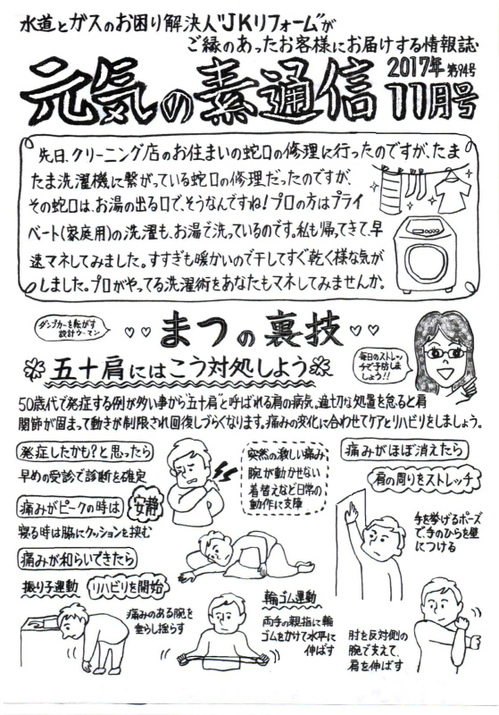 水道とガスのお困り解決人"JKリフォーム"が
ご縁のあったお客様にお届けする情報誌
元気の素通信 2017年 第94号 11月号
先日、クリーニング店のお住まいの蛇口の修理に行ったのですが、たま
たま洗濯機に繋がっている蛇口の修理だったのですが、
その蛇口は、お湯の出る口で、そうなんですね!プロの方はプライ
ベート(家庭用)の洗濯も、お湯で洗っているのです。私も帰ってきて、早
速マネしてみました。すすぎも暖かいので干してすぐ乾く様な気が
しました。プロがやってる洗濯術をあなたもマネしてみませんか。
ダンプカーを転がす
設計ウーマン
まつの裏技
毎日のストレッ
チで予防しま
しょう!!
五十肩にはこう対処しよう
50歳代で発症する例が多い事から"五十肩"と呼ばれる肩の病気。適切な処置を怠ると肩
関節が固まって動きが制限され回復しづらくなります。痛みの変化に合わせてケアとリハビリをしましょう。
発症したかも?と思ったら
早めの受診で診断を確定
突然の激しい痛み
腕が動かせない
着替えなど日常の
動作に支障
痛みがピークの時は 安静
寝る時は脇にクッションを挟む
痛みが和らいできたら
振り子運動 リハビリを開始
痛みのある腕を
垂らし揺らす
輪ゴム運動
両手の親指に輪
ゴムをかけて水平に
伸ばす
痛みがほぼ消えたら
肩の周りをストレッチ
手を挙げるポーズ
で、手のひらを壁
につける
肘を反対側の
腕で支えて、
肩を伸ばす